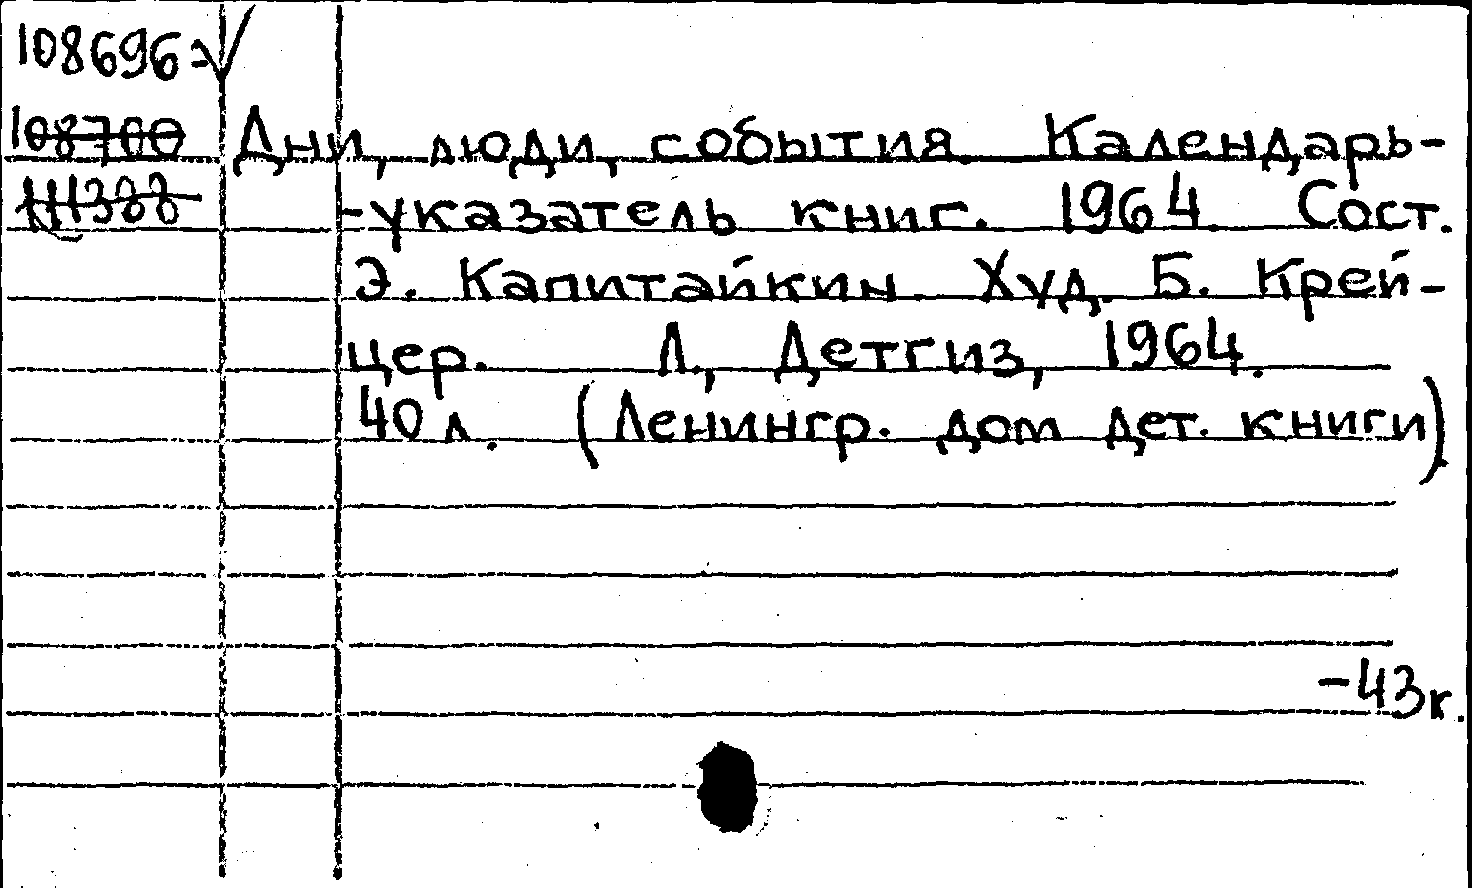 108696 √
108700 Дни, люди, события. Календарь-
111388 -указатель книг. 1964. Сост.
Э. Капитайкин. Худ. Б. Крей-
цер. Л., Детгиз, 1964.
40 л. (Ленингр. дом дет. книги)
-43к.